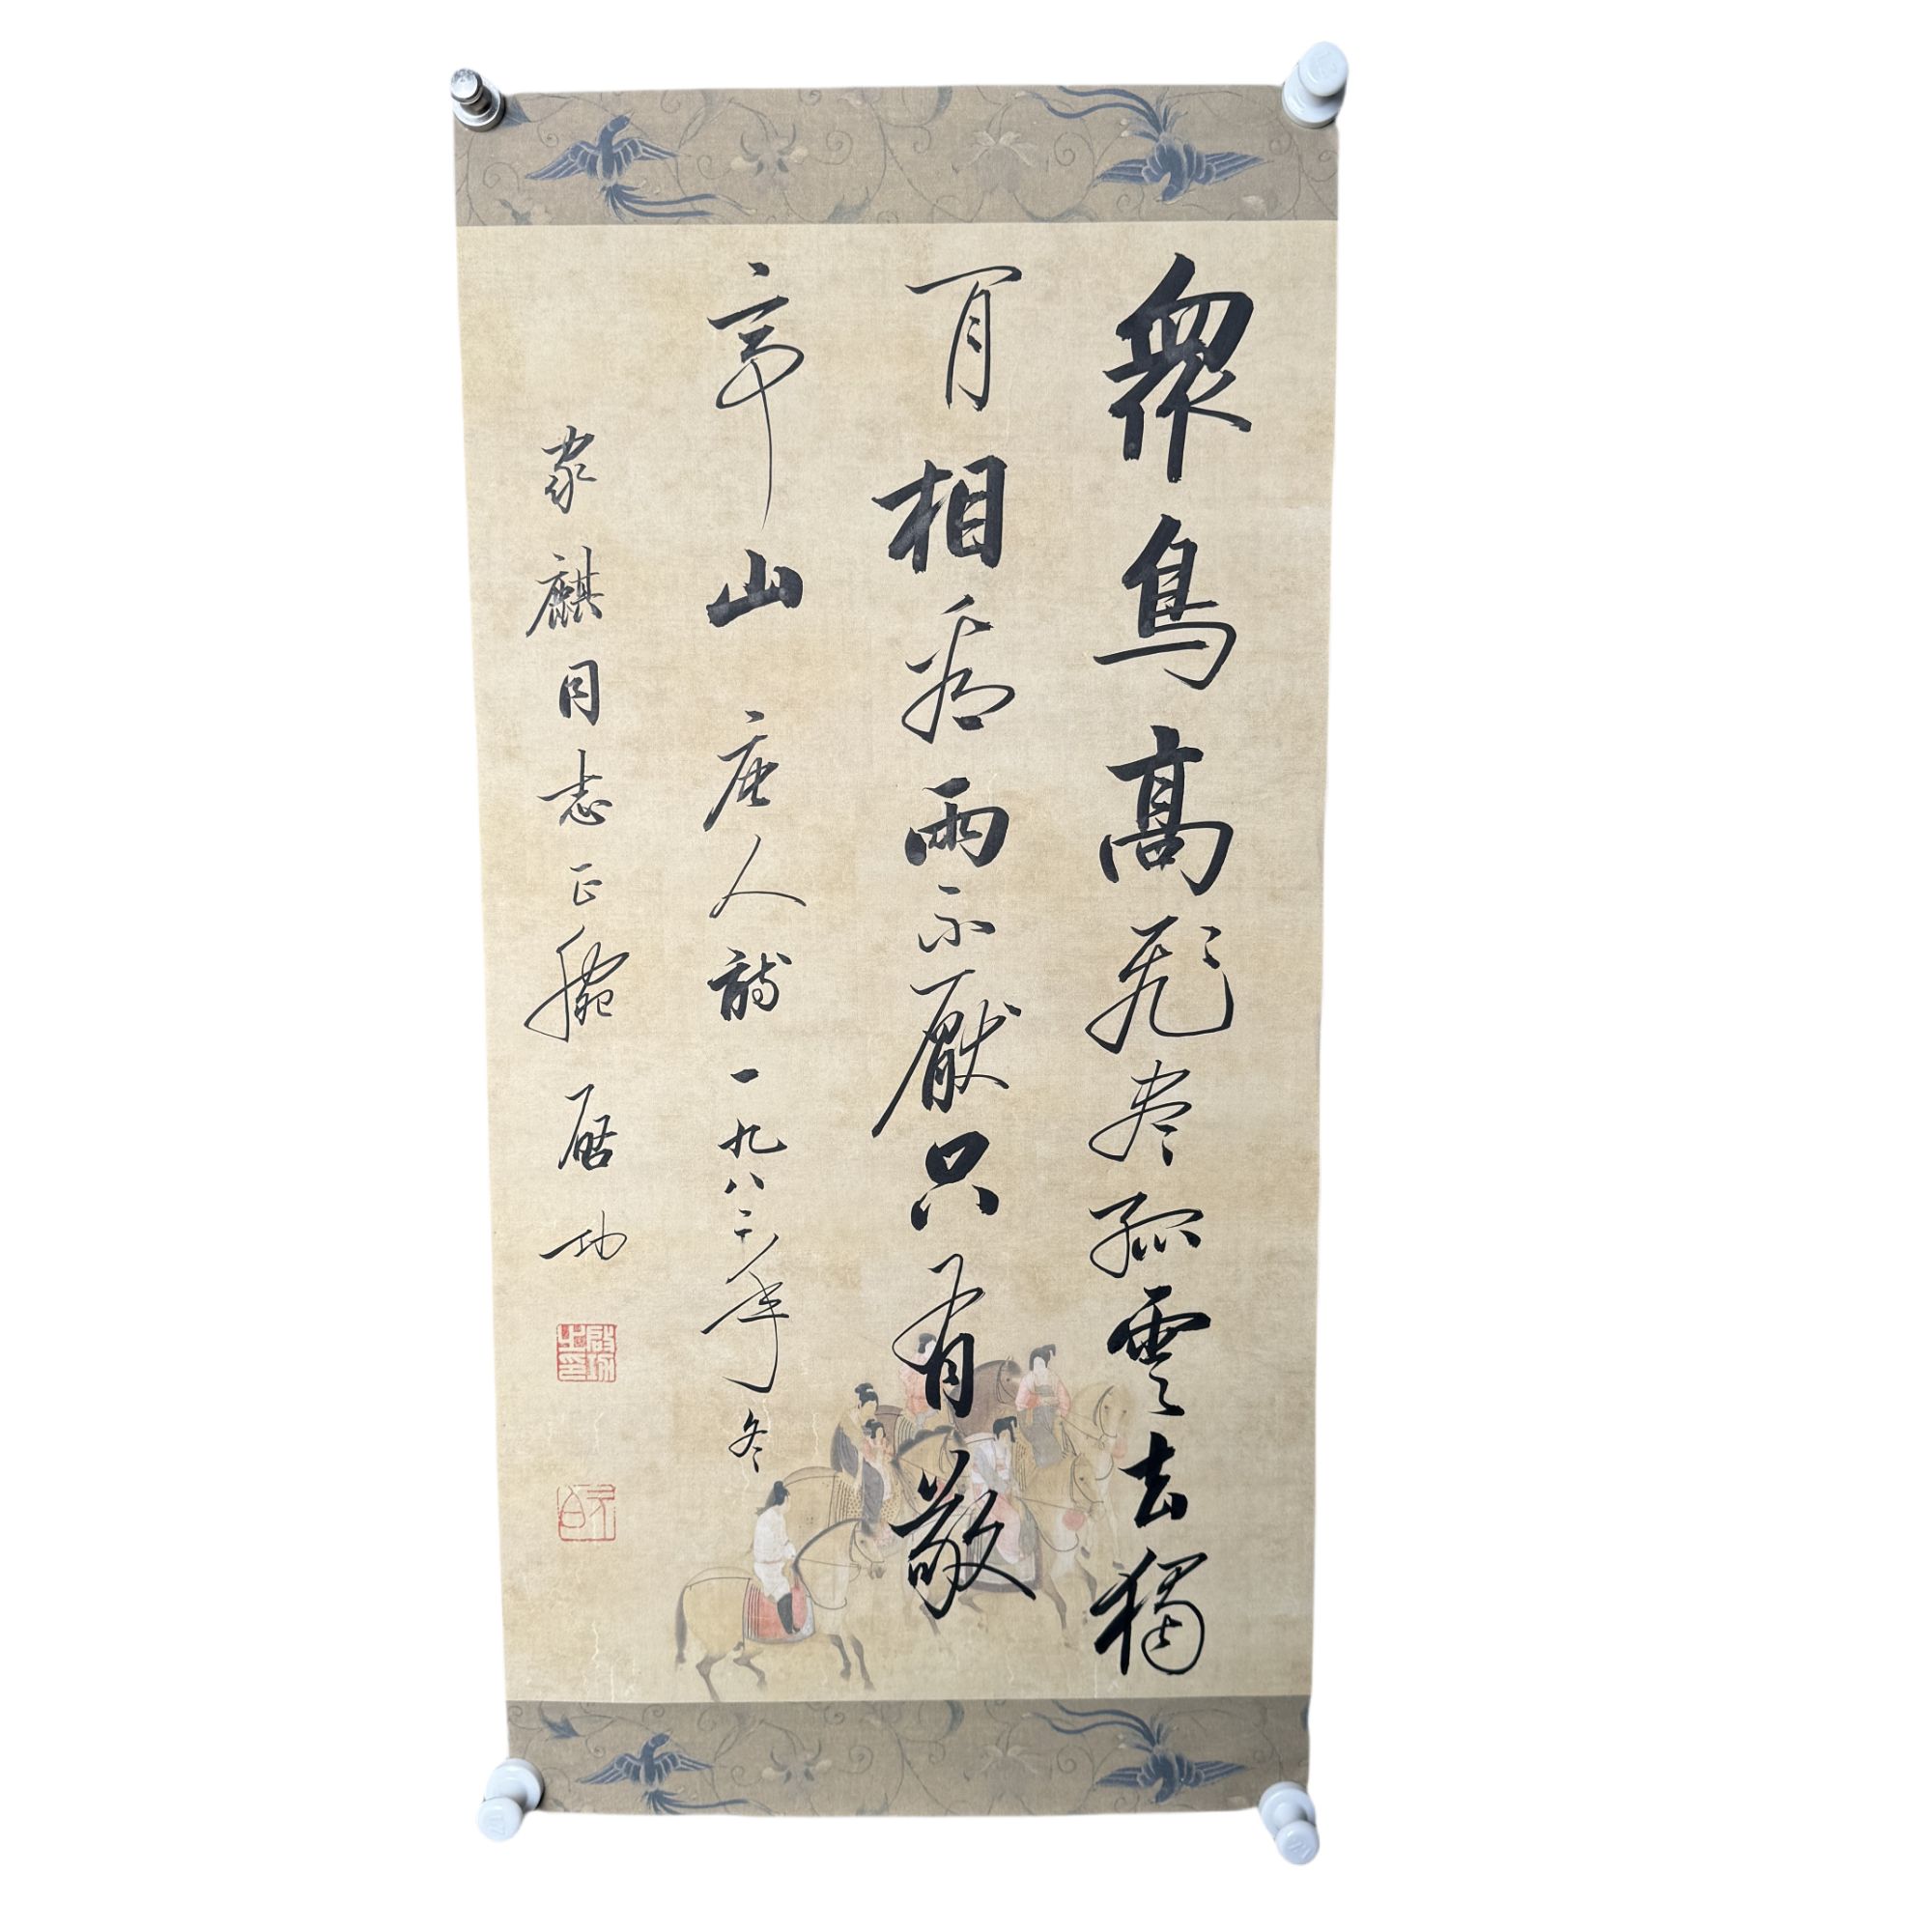 眾鳥高飛盡孤雲去獨
閒相看兩不厭只有敬
亭山 唐人詩 一九八二年冬
家麒同志正腕 啟功
啟功之印
元白